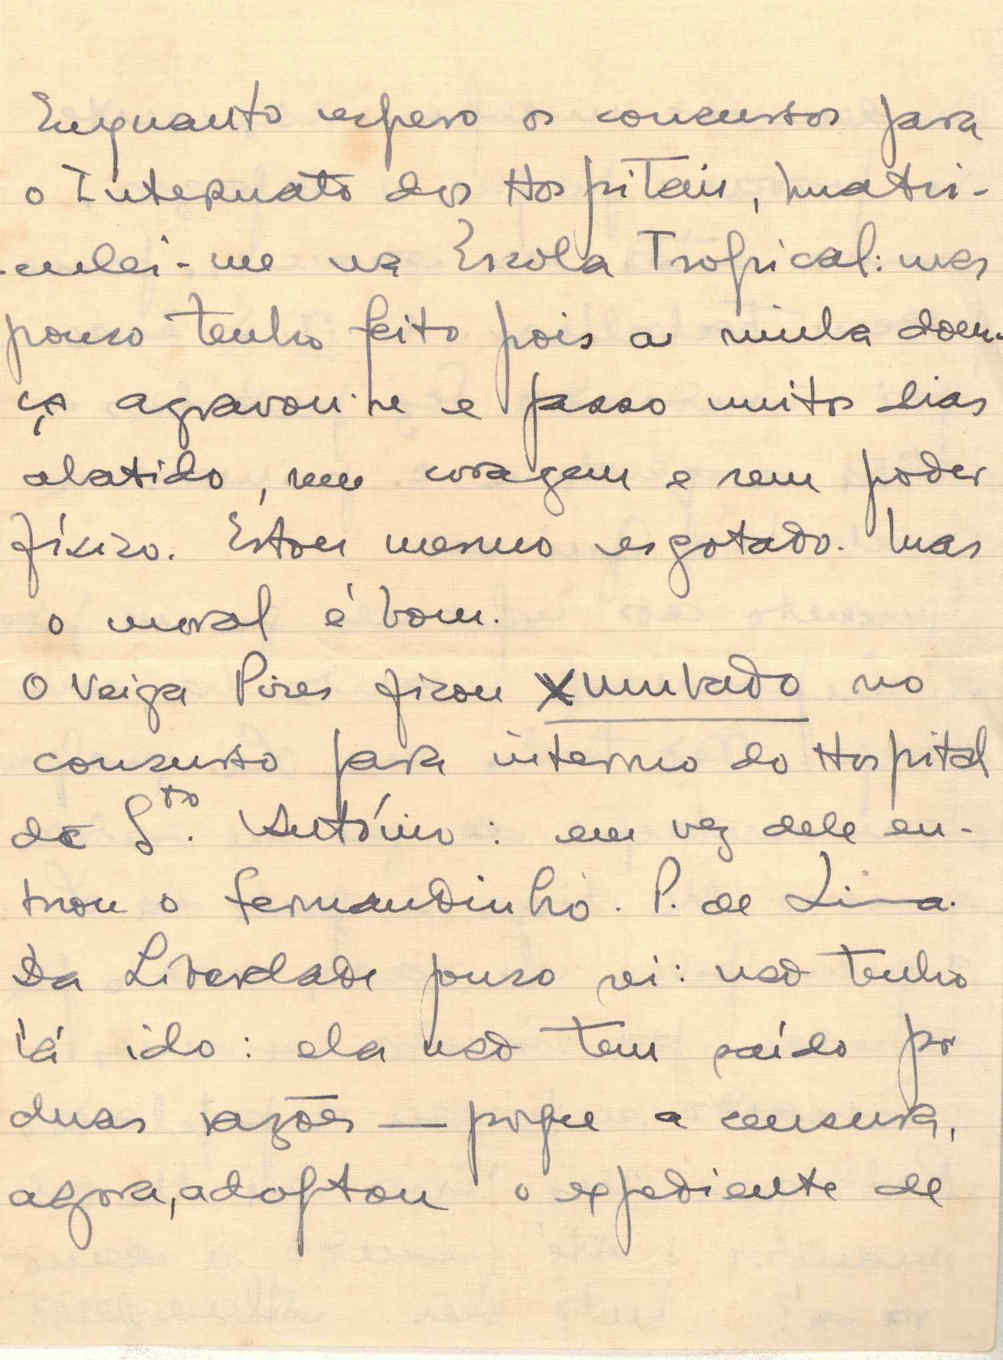 Enquanto espero os concursos para
o Internato dos Hospitais, matri-
-culei-me na Escola Tropical: mas
pouco tenho feito pois a minha doen-
ça agravou-se e passo muitos dias
abatido, sem coragem e sem poder
físico. Estou mesmo esgotado. Mas
o moral é bom.
O Veiga Pires ficou chumbado no
concurso para interno do Hospital
de Sto. António: em vez dele en-
trou o Fernandinho. P. de Lima.
Da Liberdade pouco sei: não tenho
lá ido: ela não tem saído por
duas razões — porque a censura,
agora, adoptou o expediente de